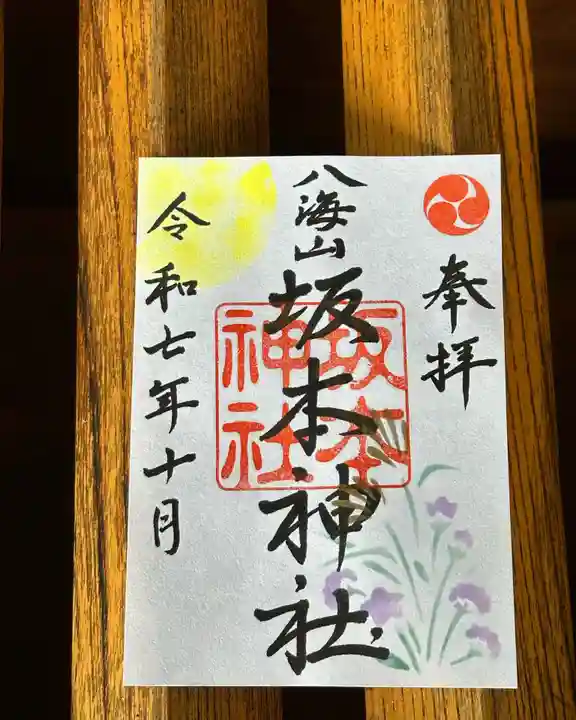 奉拝
八海山
坂本神社
坂本
神社
令和七年十月